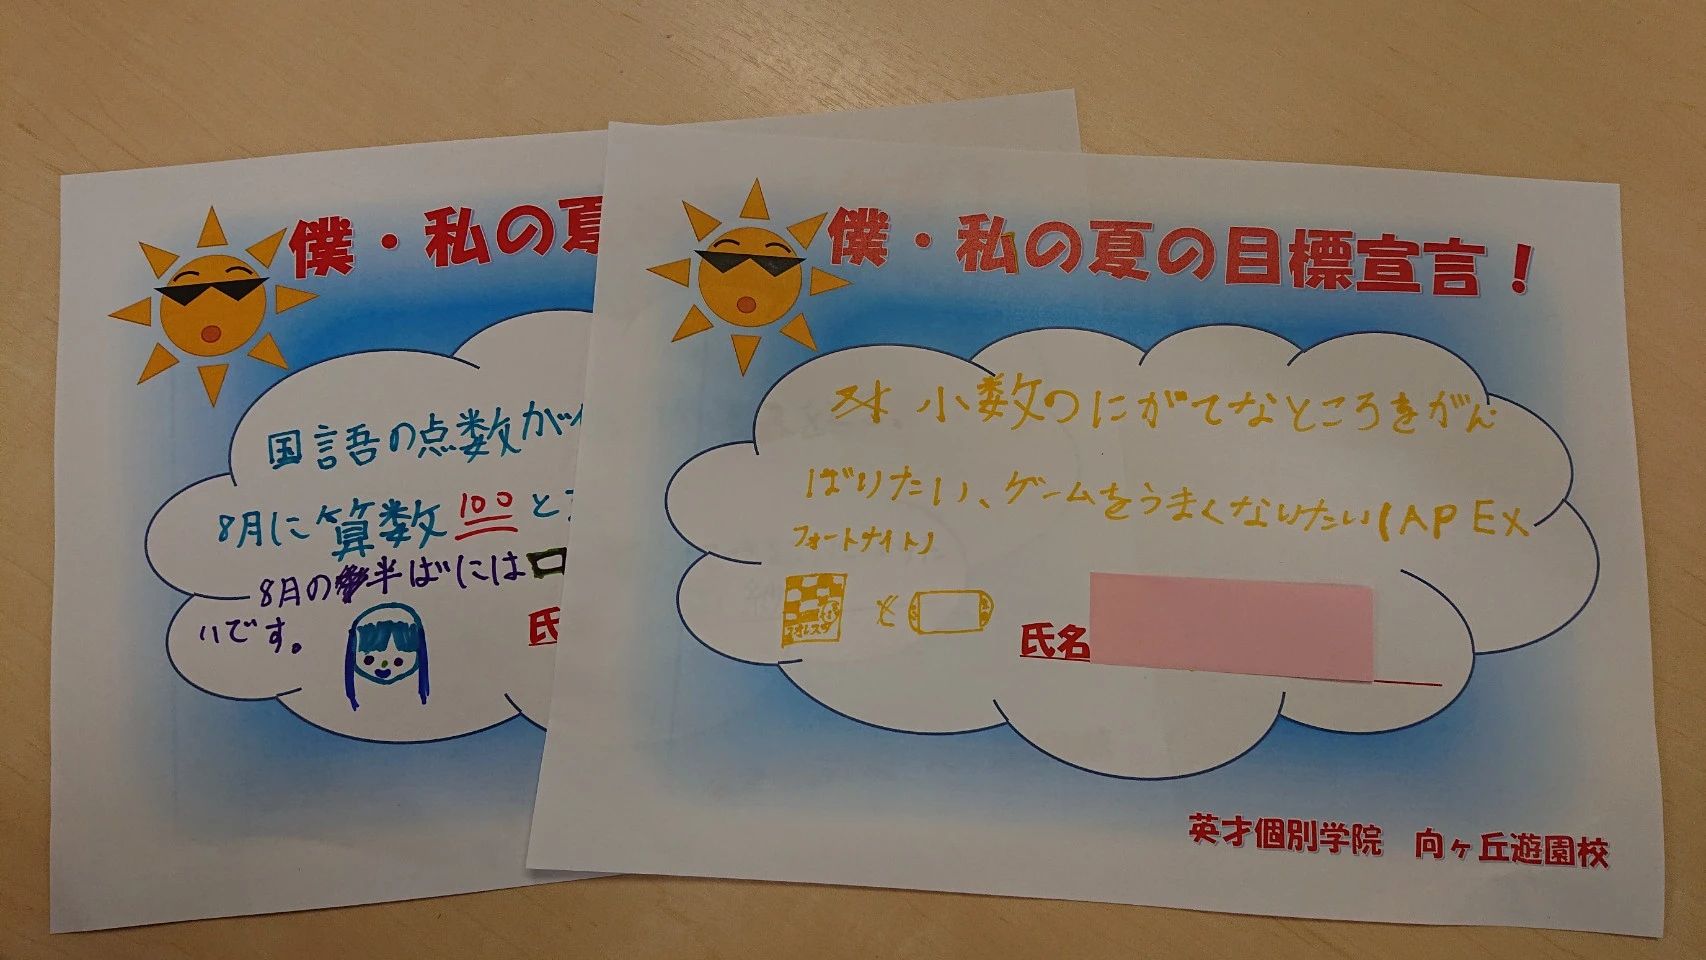 僕・私の夏
国語の点数が
8月に算数100と
8月の半ばには
いです。
氏
僕・私の夏の目標宣言!
小数のにがてなところをがん
ばりたい、ゲームをうまくなりたい(APEX
フォートナイト)
氏名
英才個別学院 向ヶ丘遊園校